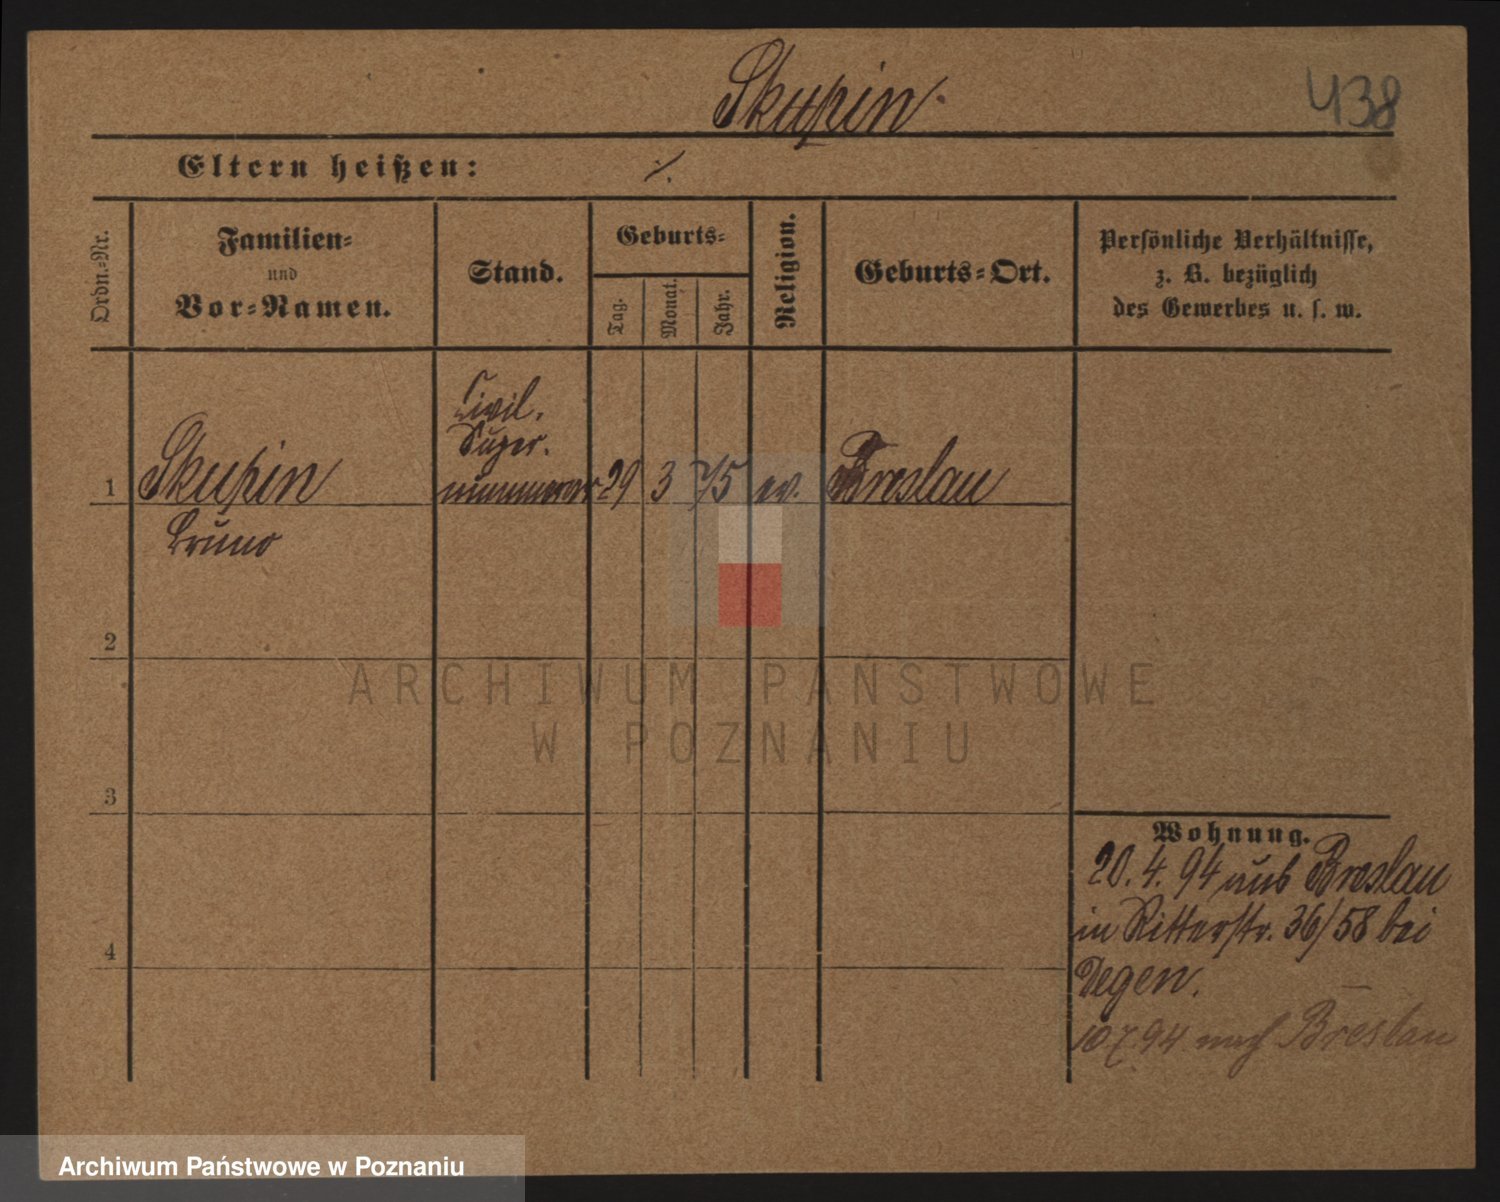 Skupin.
438
Eltern heißen: ·/.
Ordn.-Nr.
Familien-
und
Vor-Namen.
Stand.
Geburts-
Tag.
Monat.
Jahr.
Religion.
Geburts-Ort.
Persönliche Verhältnisse,
z. B. bezüglich
des Gewerbes u. s. w.
Civil.
Super.
1 Skupin nummerar 29 3 75 ev. Breslau
Bruno
2
ARCHIWUM PAŃSTWOWE
W POZNANIU
3
Wohnung.
20. 4. 94 aus Breslau
in Ritterstr. 36/58 bei
4
Degen.
10.7.94 nach Breslau
Archiwum Państwowe w Poznaniu